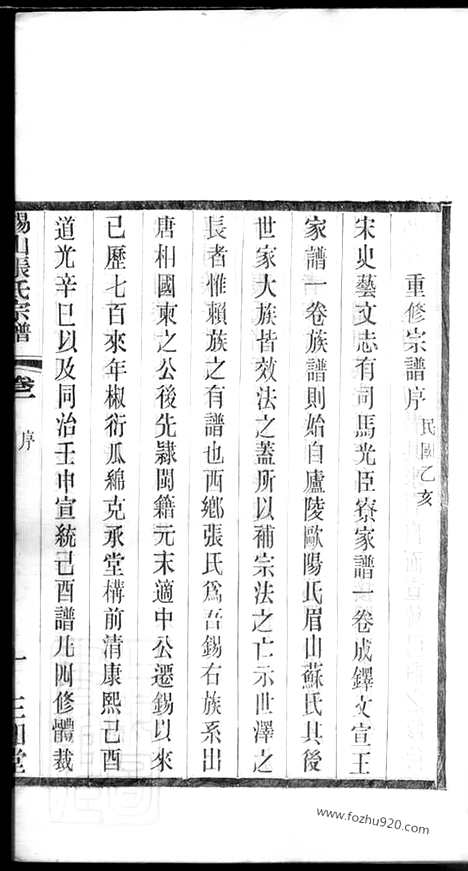 重修宗譜序 民國乙亥
宋史藝文志有司馬光臣寮家譜一卷成鐸文宣王
家譜一卷族譜則始自廬陵歐陽氏眉山蘇氏其後
世家大族皆效法之蓋所以補宗法之亡示世澤之
長者惟賴族之有譜也西鄉張氏爲吾錫右族系出
唐相國東之公後先隷閩籍元末適中公遷錫以來
已歷七百來年椒衍瓜綿克承堂構前清康熙己酉
道光辛巳以及同治壬申宣統己酉譜凡四修體裁
錫山張氏宗譜 序 一
www.fozhu920.com